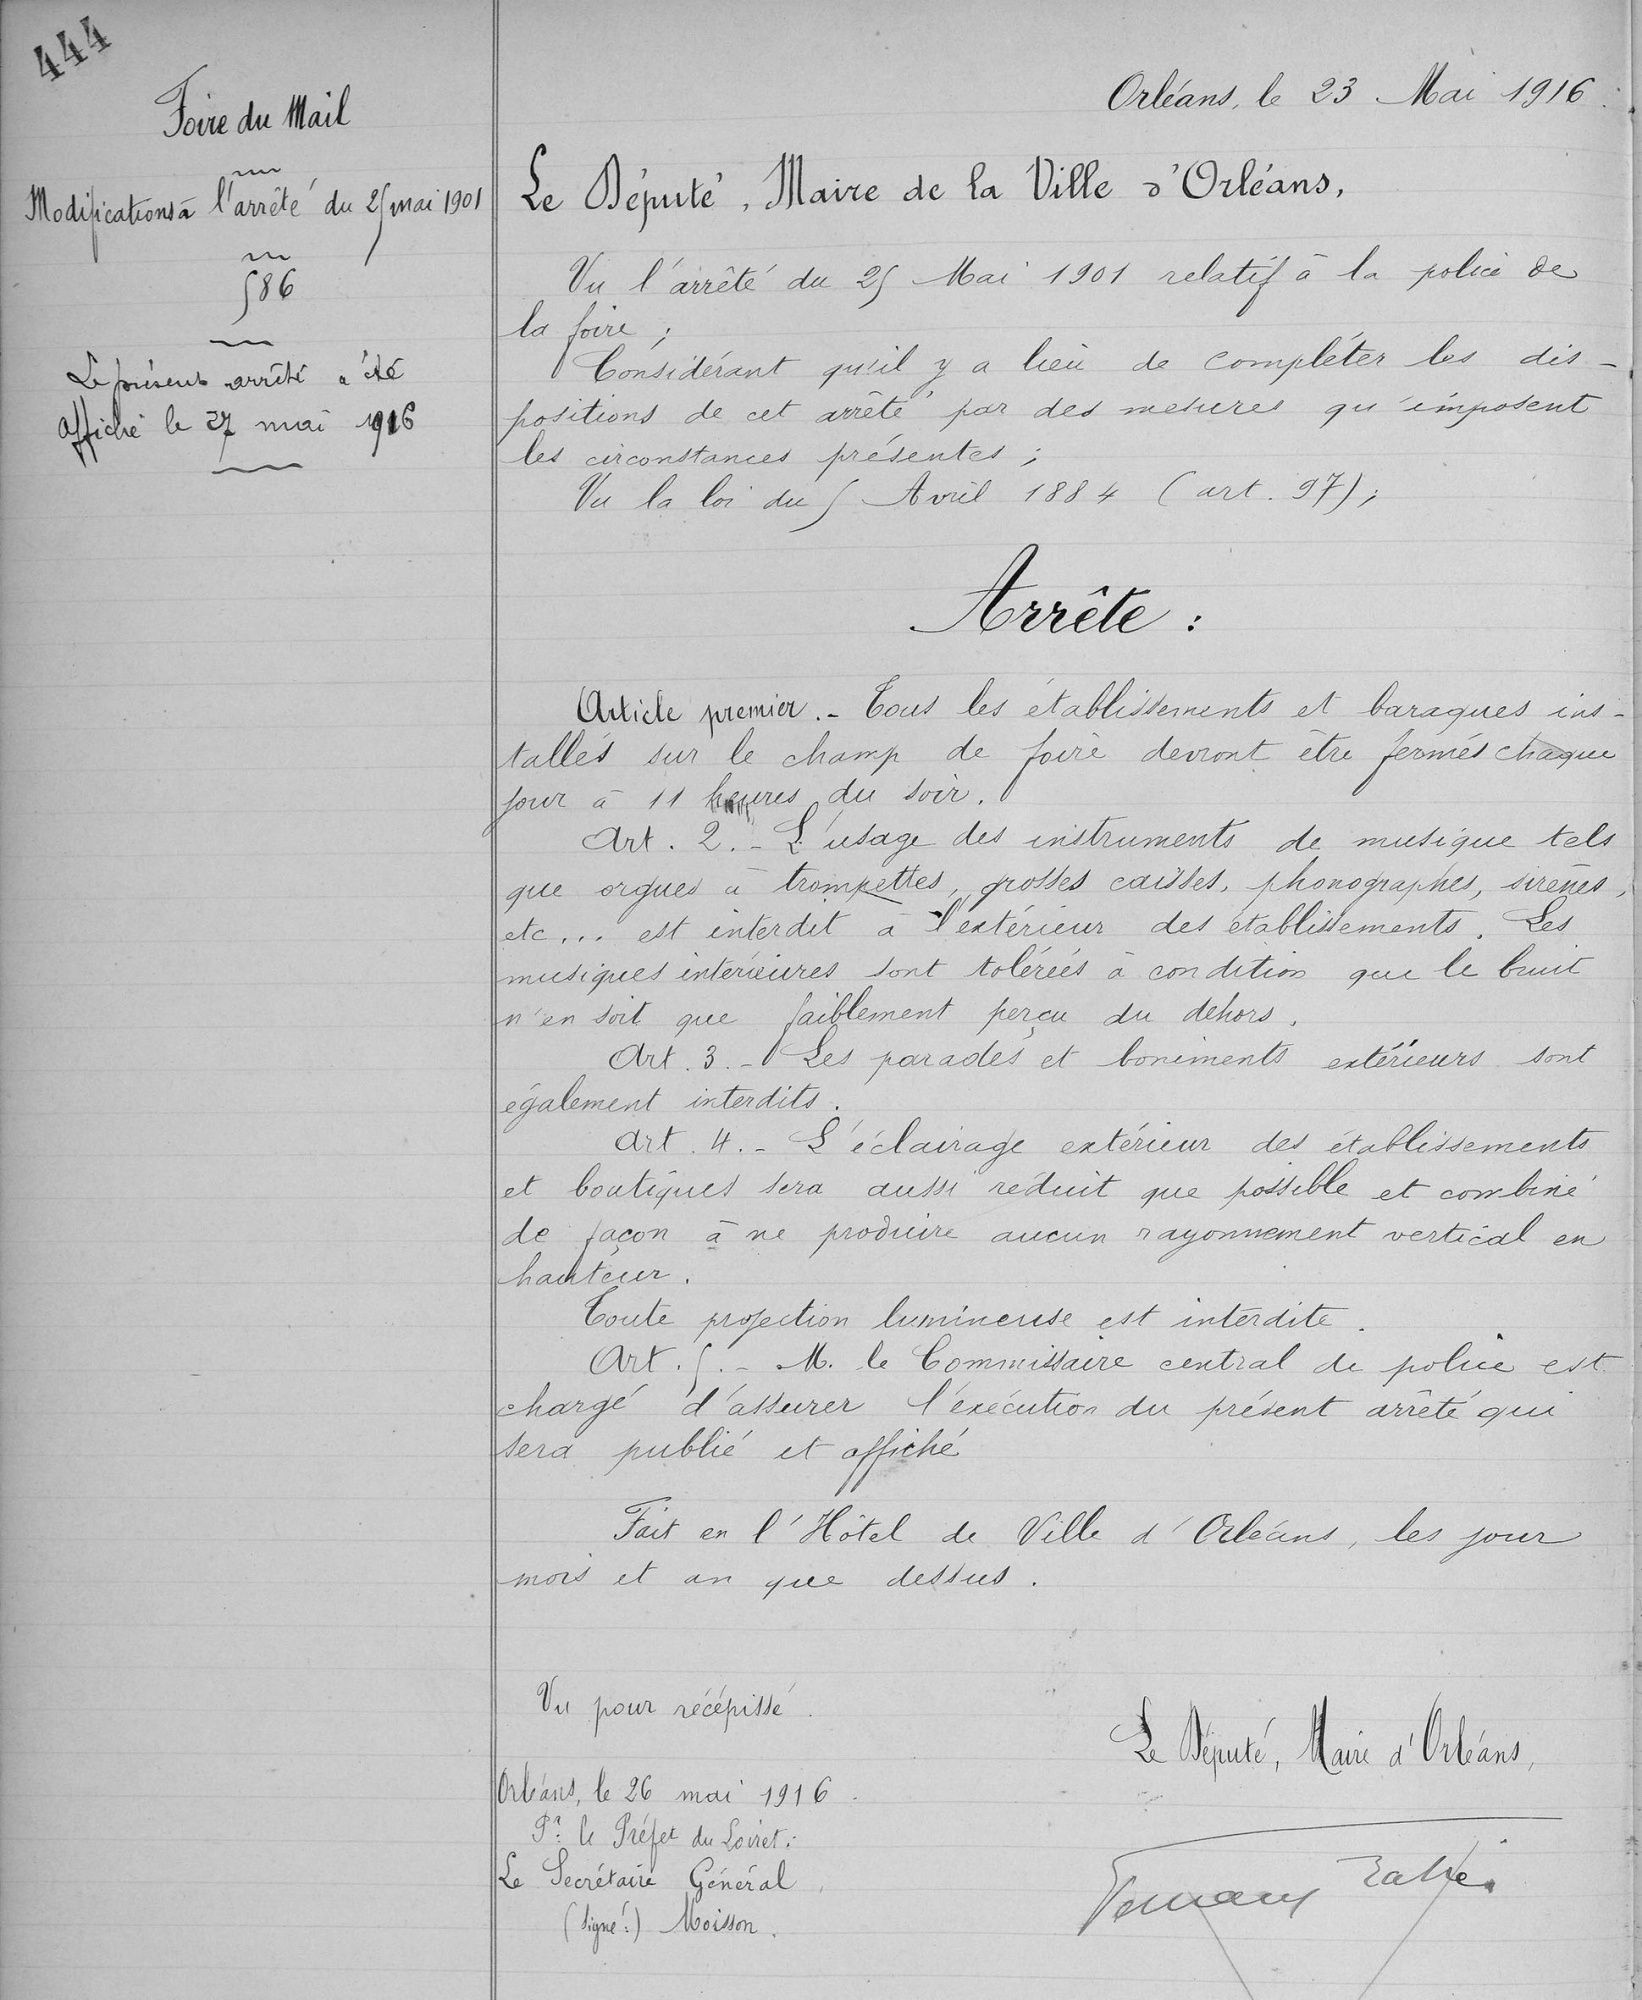 444
Foire du Mail
Modifications à l'arrêté du 25 mai 1901
586
Le présent arrêté a été
affiché le 27 mai 1916
Orléans, le 23 Mai 1916.
Le Député, Maire de la Ville d'Orléans,
Vu l'arrêté du 25 Mai 1901 relatif à la police de
la foire ;
Considérant qu'il y a lieu de compléter les dis-
positions de cet arrêté par des mesures qu'imposent
les circonstances présentes ;
Vu la loi du 5 Avril 1884 (art. 97) ;
Arrête :
Article premier. - Tous les établissements et baraques ins-
tallés sur le champ de foire devront être fermés chaque
jour à 11 heures du soir.
Art. 2. - L'usage des instruments de musique tels
que orgues à trompettes, grosses caisses, phonographes, sirènes,
etc... est interdit à l'extérieur des établissements. Les
musiques intérieures sont tolérées à condition que le bruit
n'en soit que faiblement perçu du dehors.
Art. 3. - Les parades et boniments extérieurs sont
également interdits.
Art. 4. - L'éclairage extérieur des établissements
et boutiques sera aussi réduit que possible et combiné
de façon à ne produire aucun rayonnement vertical en
hauteur.
Toute projection lumineuse est interdite.
Art. 5. - M. le Commissaire central de police est
chargé d'assurer l'exécution du présent arrêté qui
sera publié et affiché
Fait en l'Hôtel de Ville d'Orléans, les jour
mois et an que dessus.
Vu pour récépissé.
Orléans, le 26 mai 1916.
Pr le Préfet du Loiret :
Le Secrétaire Général,
(Signé :) Moisson.
Le Député, Maire d'Orléans,
Fernand Rabier